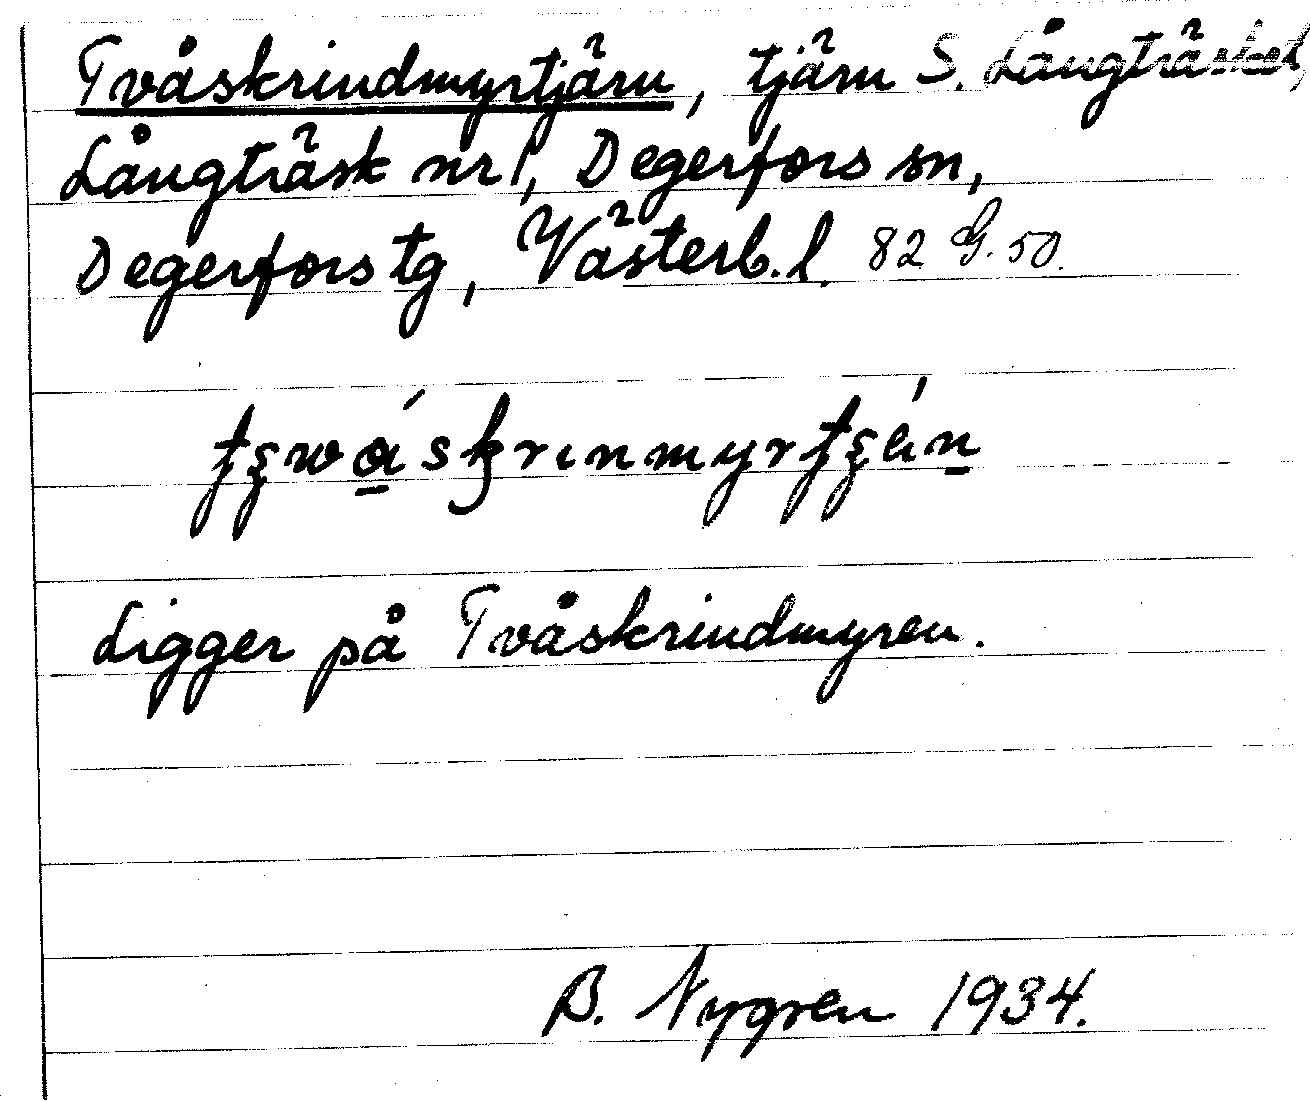 Tvåskrindmyrtjärn, tjärn S. Långträsket,
Långträsk nr 1, Degerfors sn,
Degerfors tg, Västerb. l. 82 G. 50.
Ligger på Tvåskrindmyren.
B. Nygren 1934.